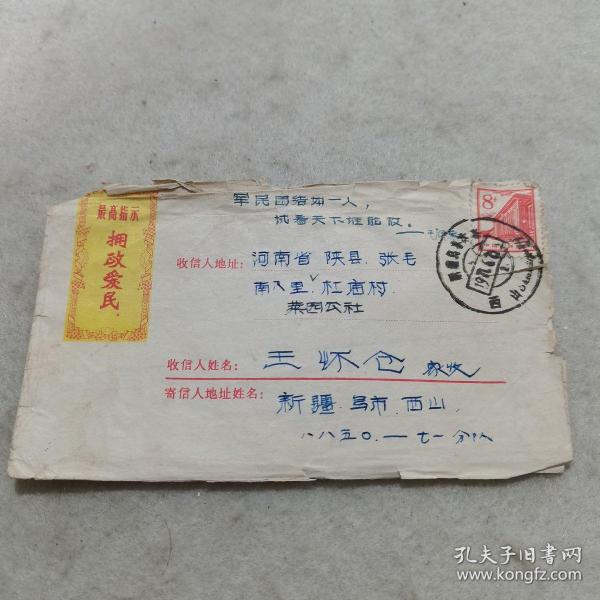 最高指示
拥政爱民.
军民团结如一人，
试看天下谁能敌.
8分
收信人地址：河南省 陕县. 张毛
南八里. 杜庙村.
菜园公社
收信人姓名：王怀仓 家收
寄信人地址姓名：新疆.乌市.西山.
八八五〇.一七一分队
孔夫子旧书网
www.kongfz.com